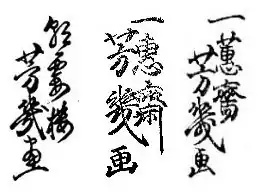 一蕙齋
芳幾画
一惠齋
芳幾画
朝霞樓
芳幾画